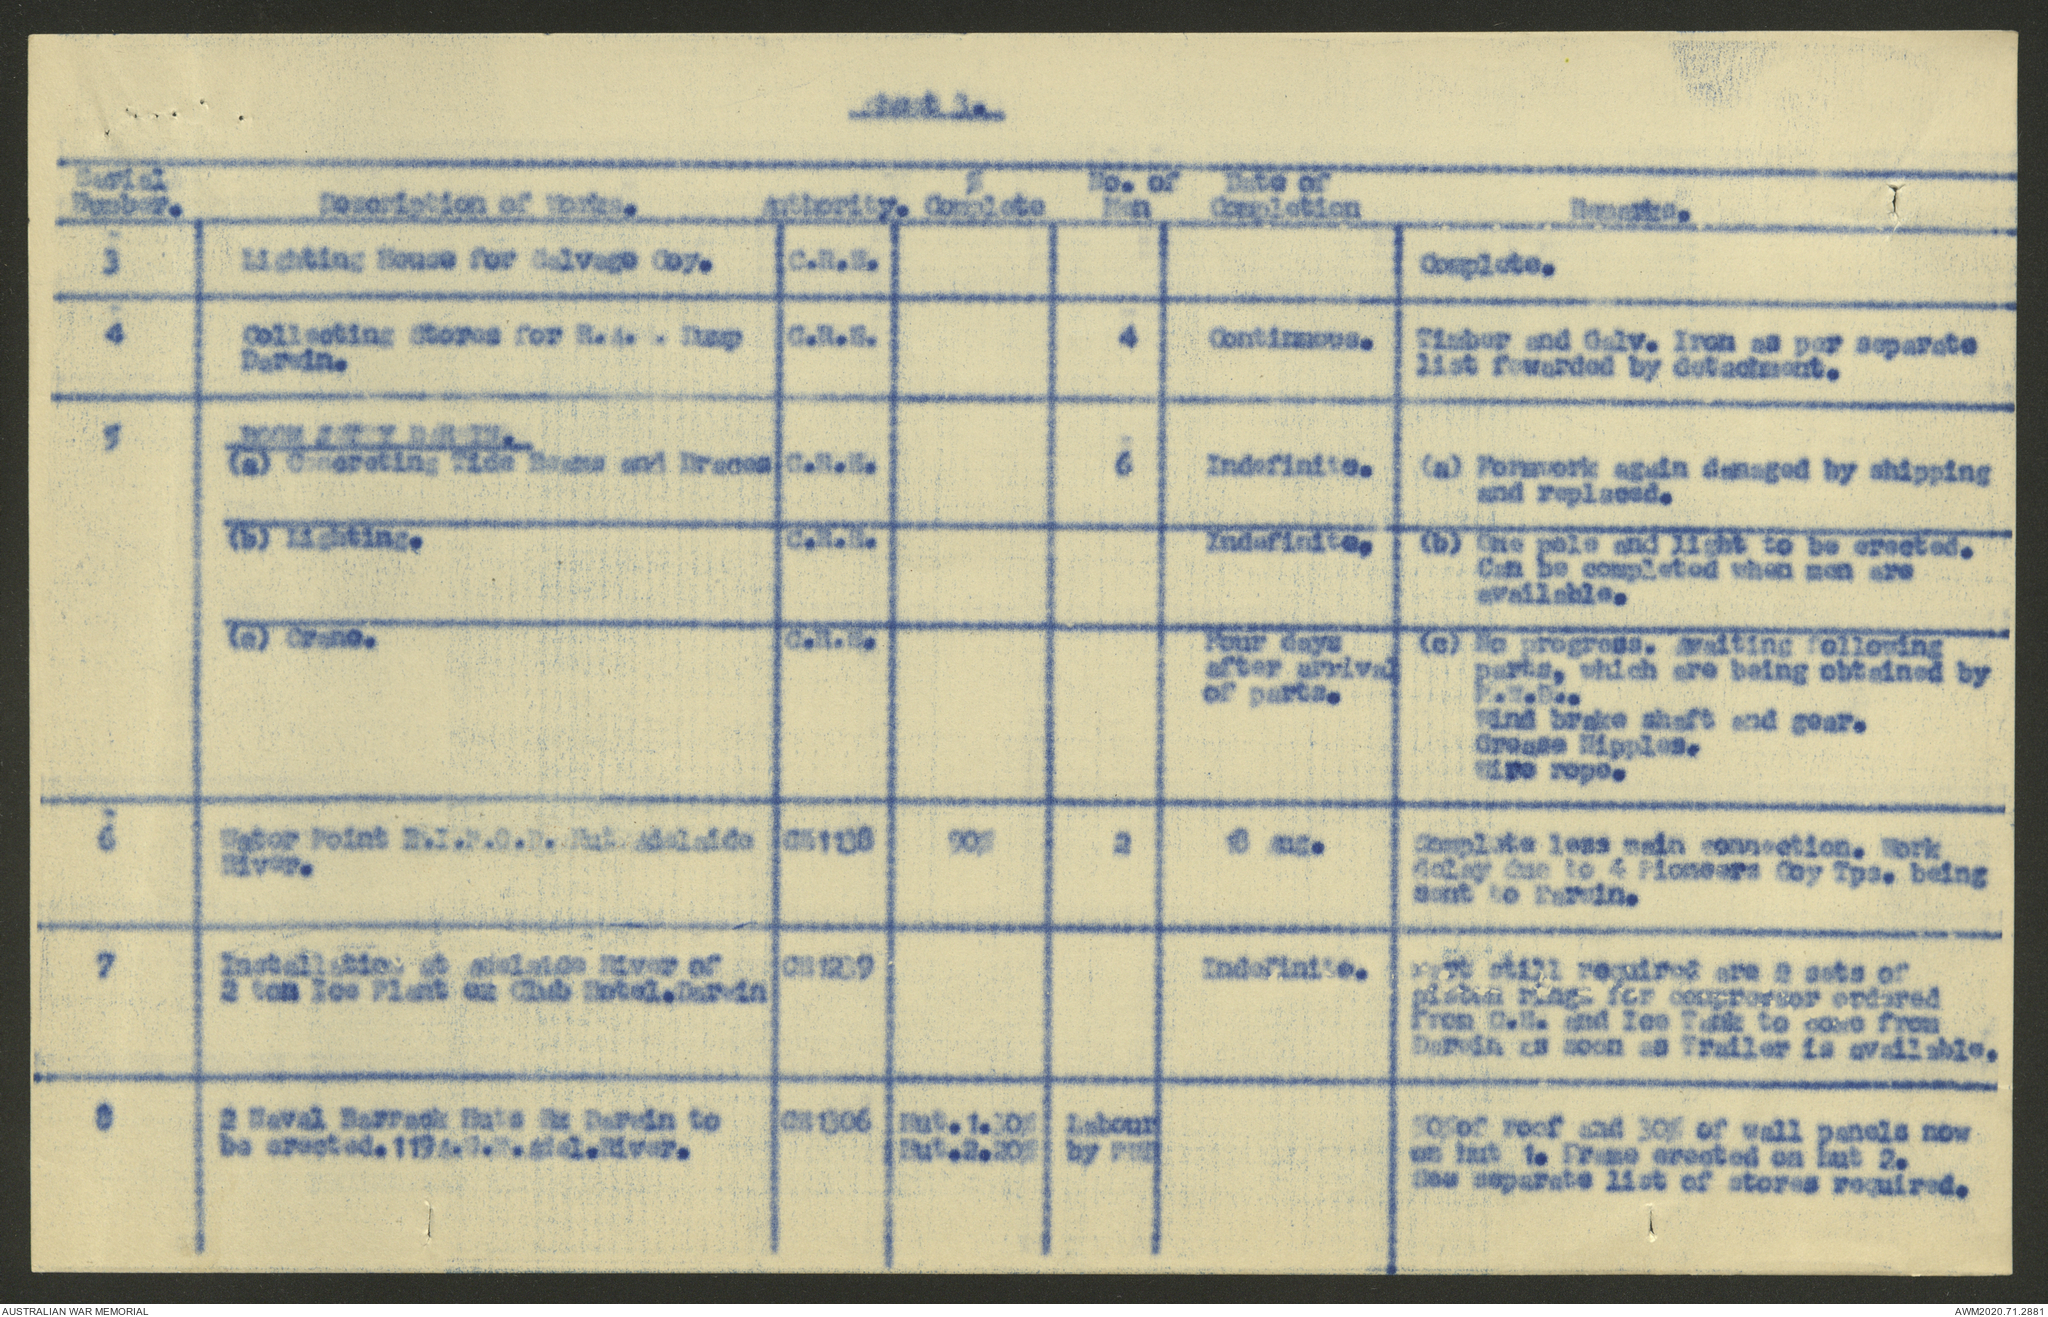 Sheet 1.
Serial Number.
Description of Works.
Authority.
% Complete
No. of Men
Date of Completion
Remarks.
3
Lighting House for Salvage Coy.
C.R.E.
Complete.
4
Collecting Stores for R.A.E. Dump
Darwin.
C.R.E.
4
Continuous.
Timber and Galv. Iron as per separate
list fowarded by detachment.
5
DARWIN.
(a) Concreting Tide Beams and Braces
C.R.E.
6
Indefinite.
(a) Formwork again damaged by shipping
and replaced.
(b) Lighting.
C.R.E.
Indefinite.
(b) One pole and light to be erected.
Can be completed when men are
available.
(c) Crane.
C.R.E.
Four days
after arrival
of parts.
(c) No progress. Awaiting following
parts, which are being obtained by
Wind brake shaft and gear.
Grease Nipples.
Wire rope.
6
Water Point Hut Adelaide
River.
CE1138
90%
2
18 Aug.
Complete less main connection. Work
delay due to 4 Pioneers Coy Tps. being
sent to Darwin.
7
Installation at Adelaide River of
2 ton Ice Plant ex Club Hotel.Darwin
CE1239
Indefinite.
Part still required are 2 sets of
piston rings for compressor ordered
from C.E. and Ice Tank to come from
Darwin as soon as Trailer is available.
8
2 Naval Barrack Huts Ex Darwin to
be erected.119A.G.H.Adel.River.
CE1306
Hut.1.
Hut.2.20%
Labour
by
of roof and 30% of wall panels now
on hut 1. Frame erected on hut 2.
See separate list of stores required.
AUSTRALIAN WAR MEMORIAL
AWM2020.71.2881